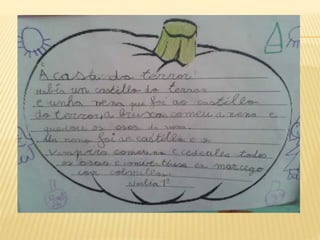 A casa do terror
Había un castillo do terror
e unha nena que foi ao castillo
do terror, a bruxa comeu a nena e
quedaro os osos da nena.
Un neno foi ao castillo e o
vampiro comeuno e cedeulle todos
os osos e convertiuse en morcego
con colmillos.
Noelia 1º